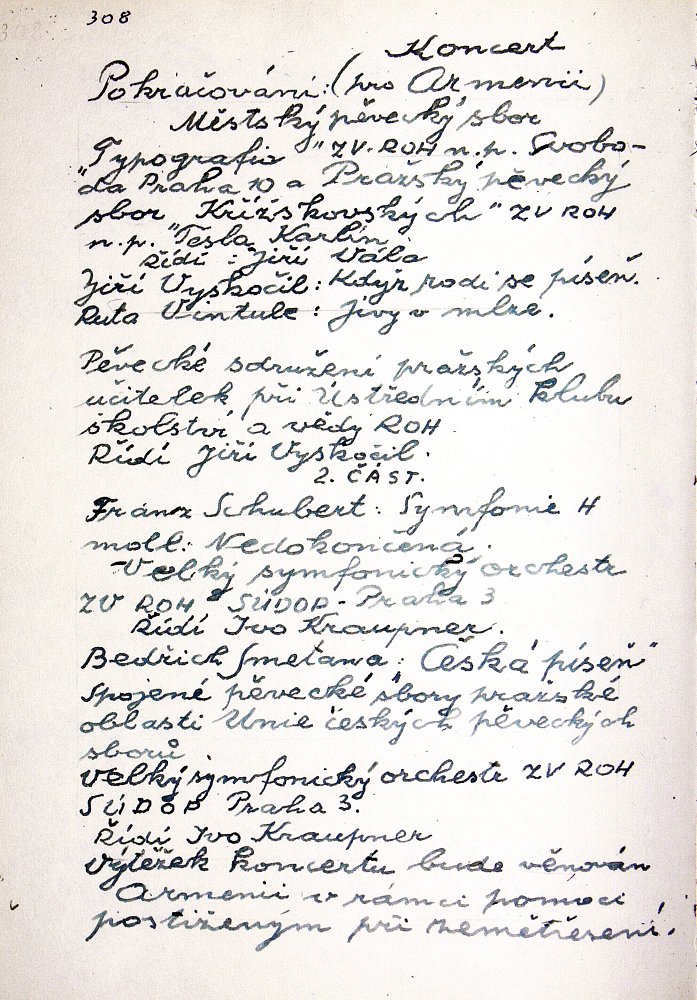 308
Koncert
Pokračování: (pro Armenii)
Městský pěvecký sbor
"Typografia" ZV-ROH n.p. Svobo-
da Praha 10 a Pražský pěvecký
sbor Křížskovských" ZV ROH
n.p. "Tesla Karlín
Řídí: Jiří Vála
Jiří Vyskočil: Když rodi se píseň.
Ruta Vintule: Jivy v mlze.
Pěvecké sdružení pražských
učitelek při Ústředním klubu
školství a vědy ROH
Řídí Jiří Vyskočil.
2. ČÁST.
Franz Schubert: Symfonie H
moll: Nedokončená.
Velký symfonický orchestr
ZV ROH SUDOP - Praha 3
Řídí Ivo Kraupner.
Bedřich Smetana: Česká píseň"
Spojené pěvecké sbory pražské
oblasti Unie českých pěveckých
sborů
Velký symfonický orchestr ZV ROH
SÚDOP Praha 3.
Řídí Ivo Kraupner
Výtěžek koncertu bude věnován
Armenii v rámci pomoci
postiženým při zemětřesení.